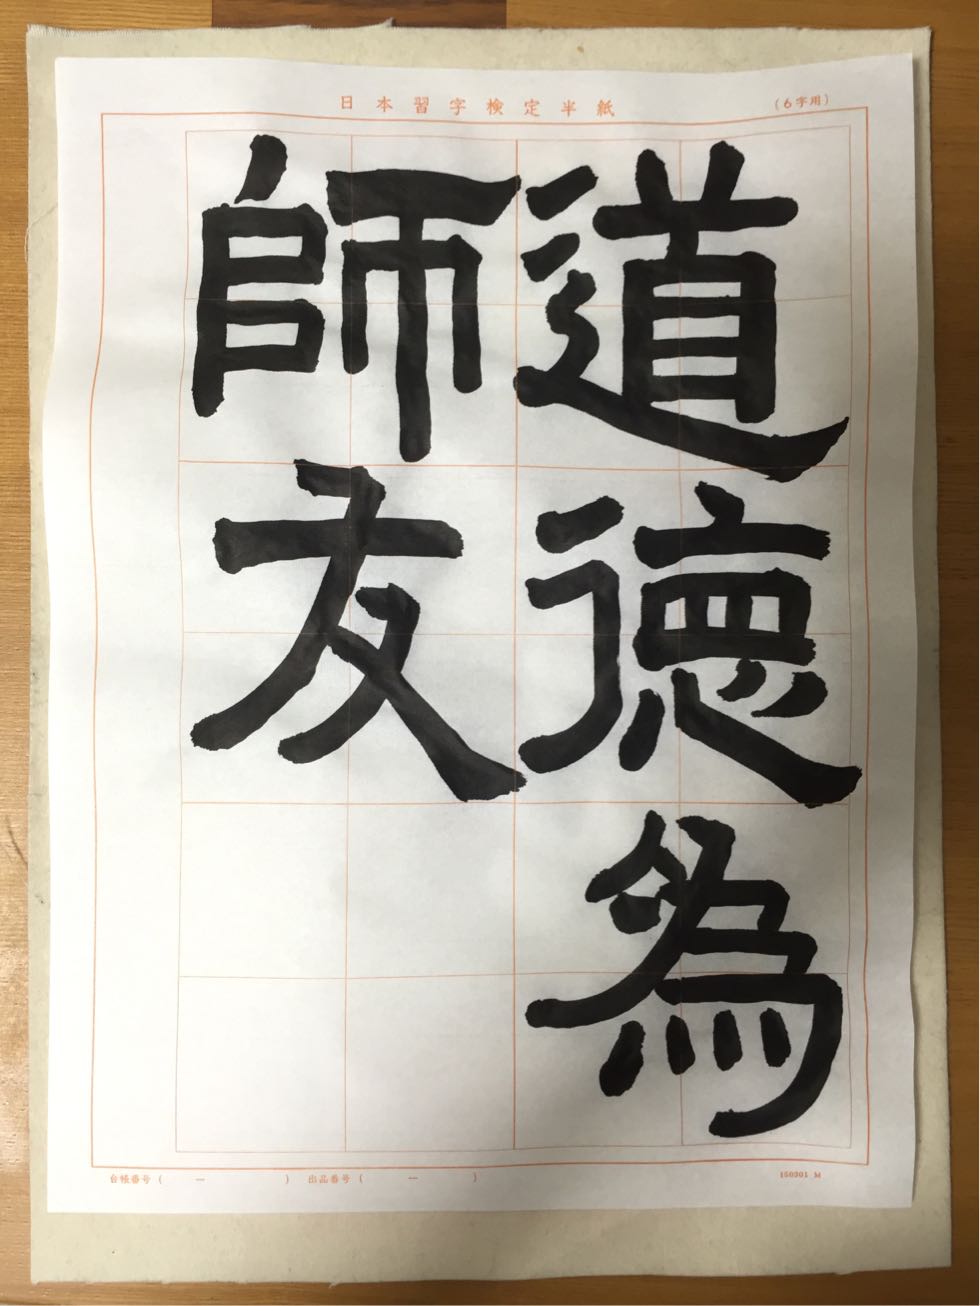 日本習字検定半紙
(6字用)
道徳為
師友
台帳番号( ー )
出品番号( ー )
150301 M